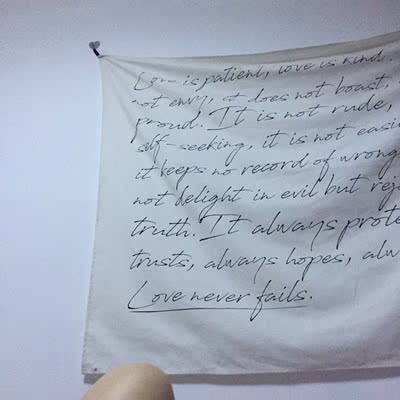 Love is patient, love is kind.
not envy, it does not boast,
proud. It is not rude,
self-seeking, it is not easi
it keeps no record of wrong
not delight in evil but rejo
truth. It always prote
trusts, always hopes, alw
Love never fails.